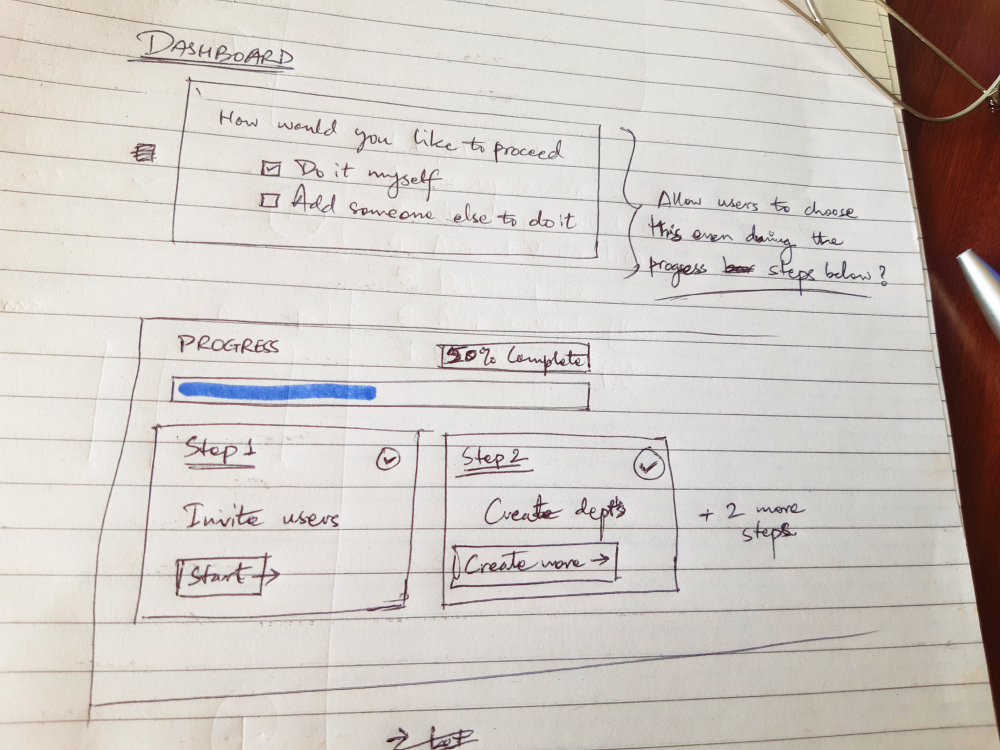 DASHBOARD
How would you like to proceed
Do it myself
Add someone else to do it
Allow users to choose
this even during the
progress steps below?
PROGRESS
50% Complete
Step 1
Invite users
Start →
Step 2
Create depts
Create more →
+ 2 more
steps
→